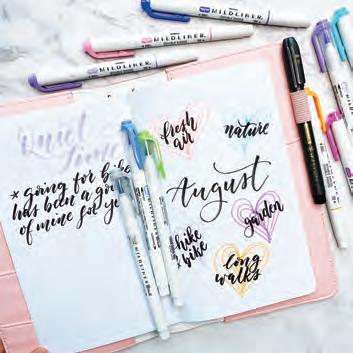 MILDLINER
MILDLINER
MILDLINER
Quiet
time
* going for bike
has been a go
of mine for ye
fresh
air
nature
August
garden
hike
& bike
long
walks
MILDLINER